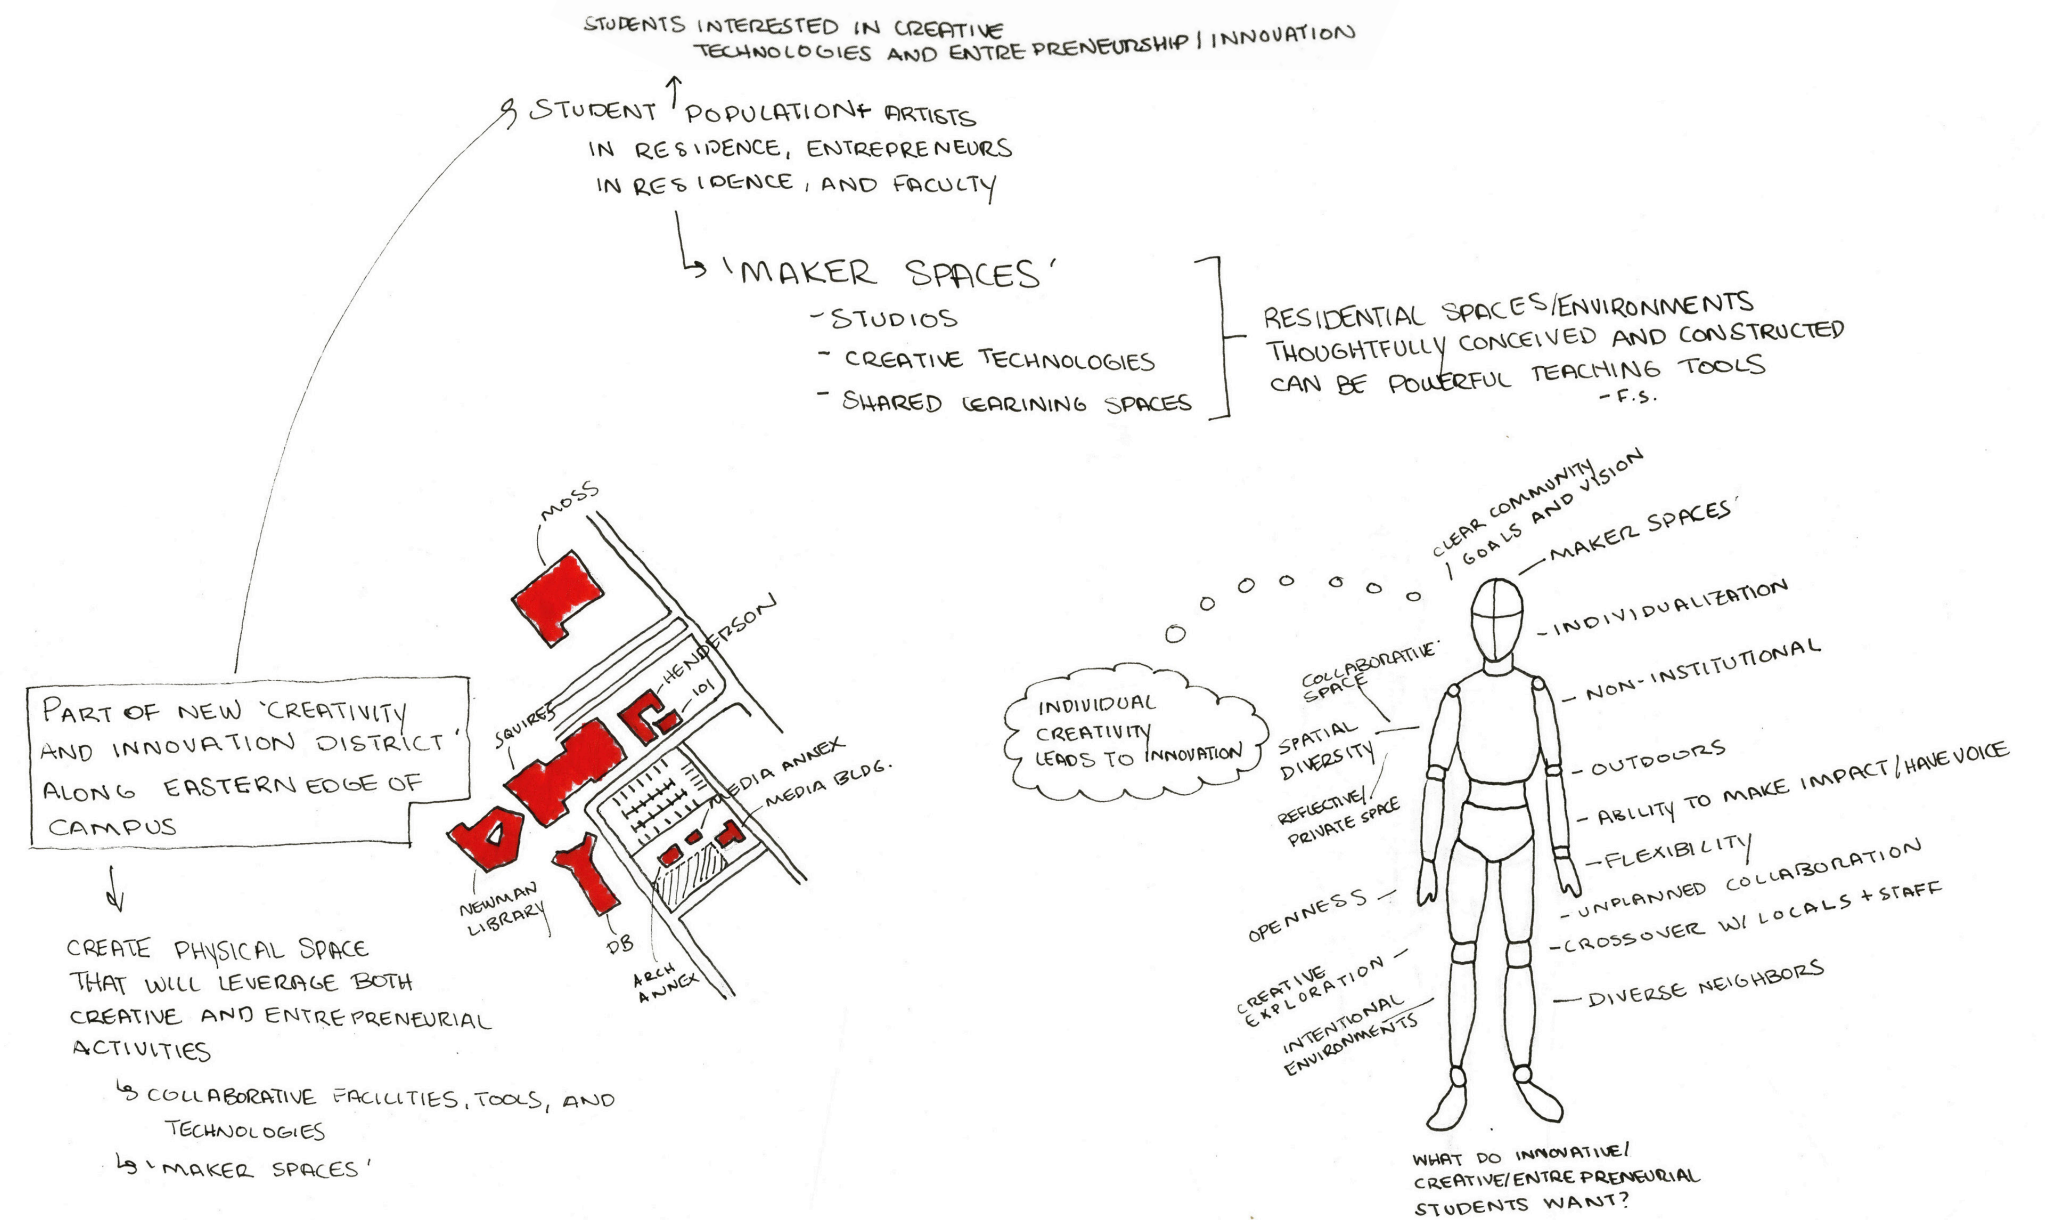 STUDENTS INTERESTED IN CREATIVE
TECHNOLOGIES AND ENTREPRENEURSHIP / INNOVATION
STUDENT POPULATION + ARTISTS
IN RESIDENCE, ENTREPRENEURS
IN RESIDENCE, AND FACULTY
'MAKER SPACES'
- STUDIOS
- CREATIVE TECHNOLOGIES
- SHARED LEARINING SPACES
RESIDENTIAL SPACES/ENVIRONMENTS
THOUGHTFULLY CONCEIVED AND CONSTRUCTED
CAN BE POWERFUL TEACHING TOOLS
- F.S.
PART OF NEW 'CREATIVITY
AND INNOVATION DISTRICT'
ALONG EASTERN EDGE OF
CAMPUS
CREATE PHYSICAL SPACE
THAT WILL LEVERAGE BOTH
CREATIVE AND ENTREPRENEURIAL
ACTIVITIES
COLLABORATIVE FACILITIES, TOOLS, AND
TECHNOLOGIES
'MAKER SPACES'
MOSS
HENDERSON
101
SQUIRES
MEDIA ANNEX
MEDIA BLDG.
NEWMAN
LIBRARY
DB
ARCH
ANNEX
INDIVIDUAL
CREATIVITY
LEADS TO INNOVATION
CLEAR COMMUNITY
GOALS AND VISION
MAKER SPACES'
- INDIVIDUALIZATION
- NON-INSTITUTIONAL
- OUTDOORS
- ABILITY TO MAKE IMPACT / HAVE VOICE
- FLEXIBILITY
- UNPLANNED COLLABORATION
- CROSSOVER W/ LOCALS + STAFF
- DIVERSE NEIGHBORS
COLLABORATIVE
SPACE
SPATIAL
DIVERSITY
REFLECTIVE/
PRIVATE SPACE
OPENNESS -
CREATIVE
EXPLORATION -
INTENTIONAL
ENVIRONMENTS
WHAT DO INNOVATIVE/
CREATIVE/ENTREPRENEURIAL
STUDENTS WANT?